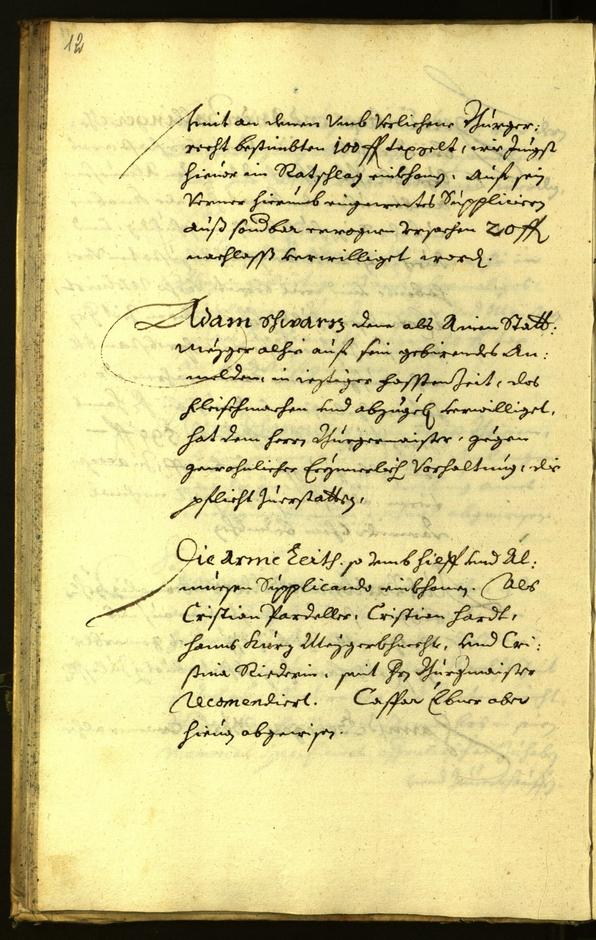 12
seint an denen Vmb Verlichene Bürger:
recht bestimbten 100 fl taxgelt, wie Jüngst
hieuor im Ratschlag einkhomen. Auf sein
verner hierumb eingerentes Suppliciern
auß sonderbar erwognen Vrsachen 20 fl
nachlaß verwilliget word.
Adam Schwarz deme als Ainen Statt:
mezger alhie auf sein gebirendes An:
melden, in ieztiger fassten Zeit, das
fleischmachen vnd verwilliget,
hat dem herrn Bürgermaister, gegen
gewohnlicher Erynnerlich Vorhaltung, die
pflicht Zuerstatten.
Die Arme Leith, so vmb hielff vnd Al:
muesen Supplicando einkhomen. Als
Cristian Pardeller, Cristian hardt,
hanns Kürz Mezgerkhnecht, vnd Cri:
stina Riederin, seint hrn Bürgmaister
recomendiert. Caspar Ebner aber
hieuon abgewisen.